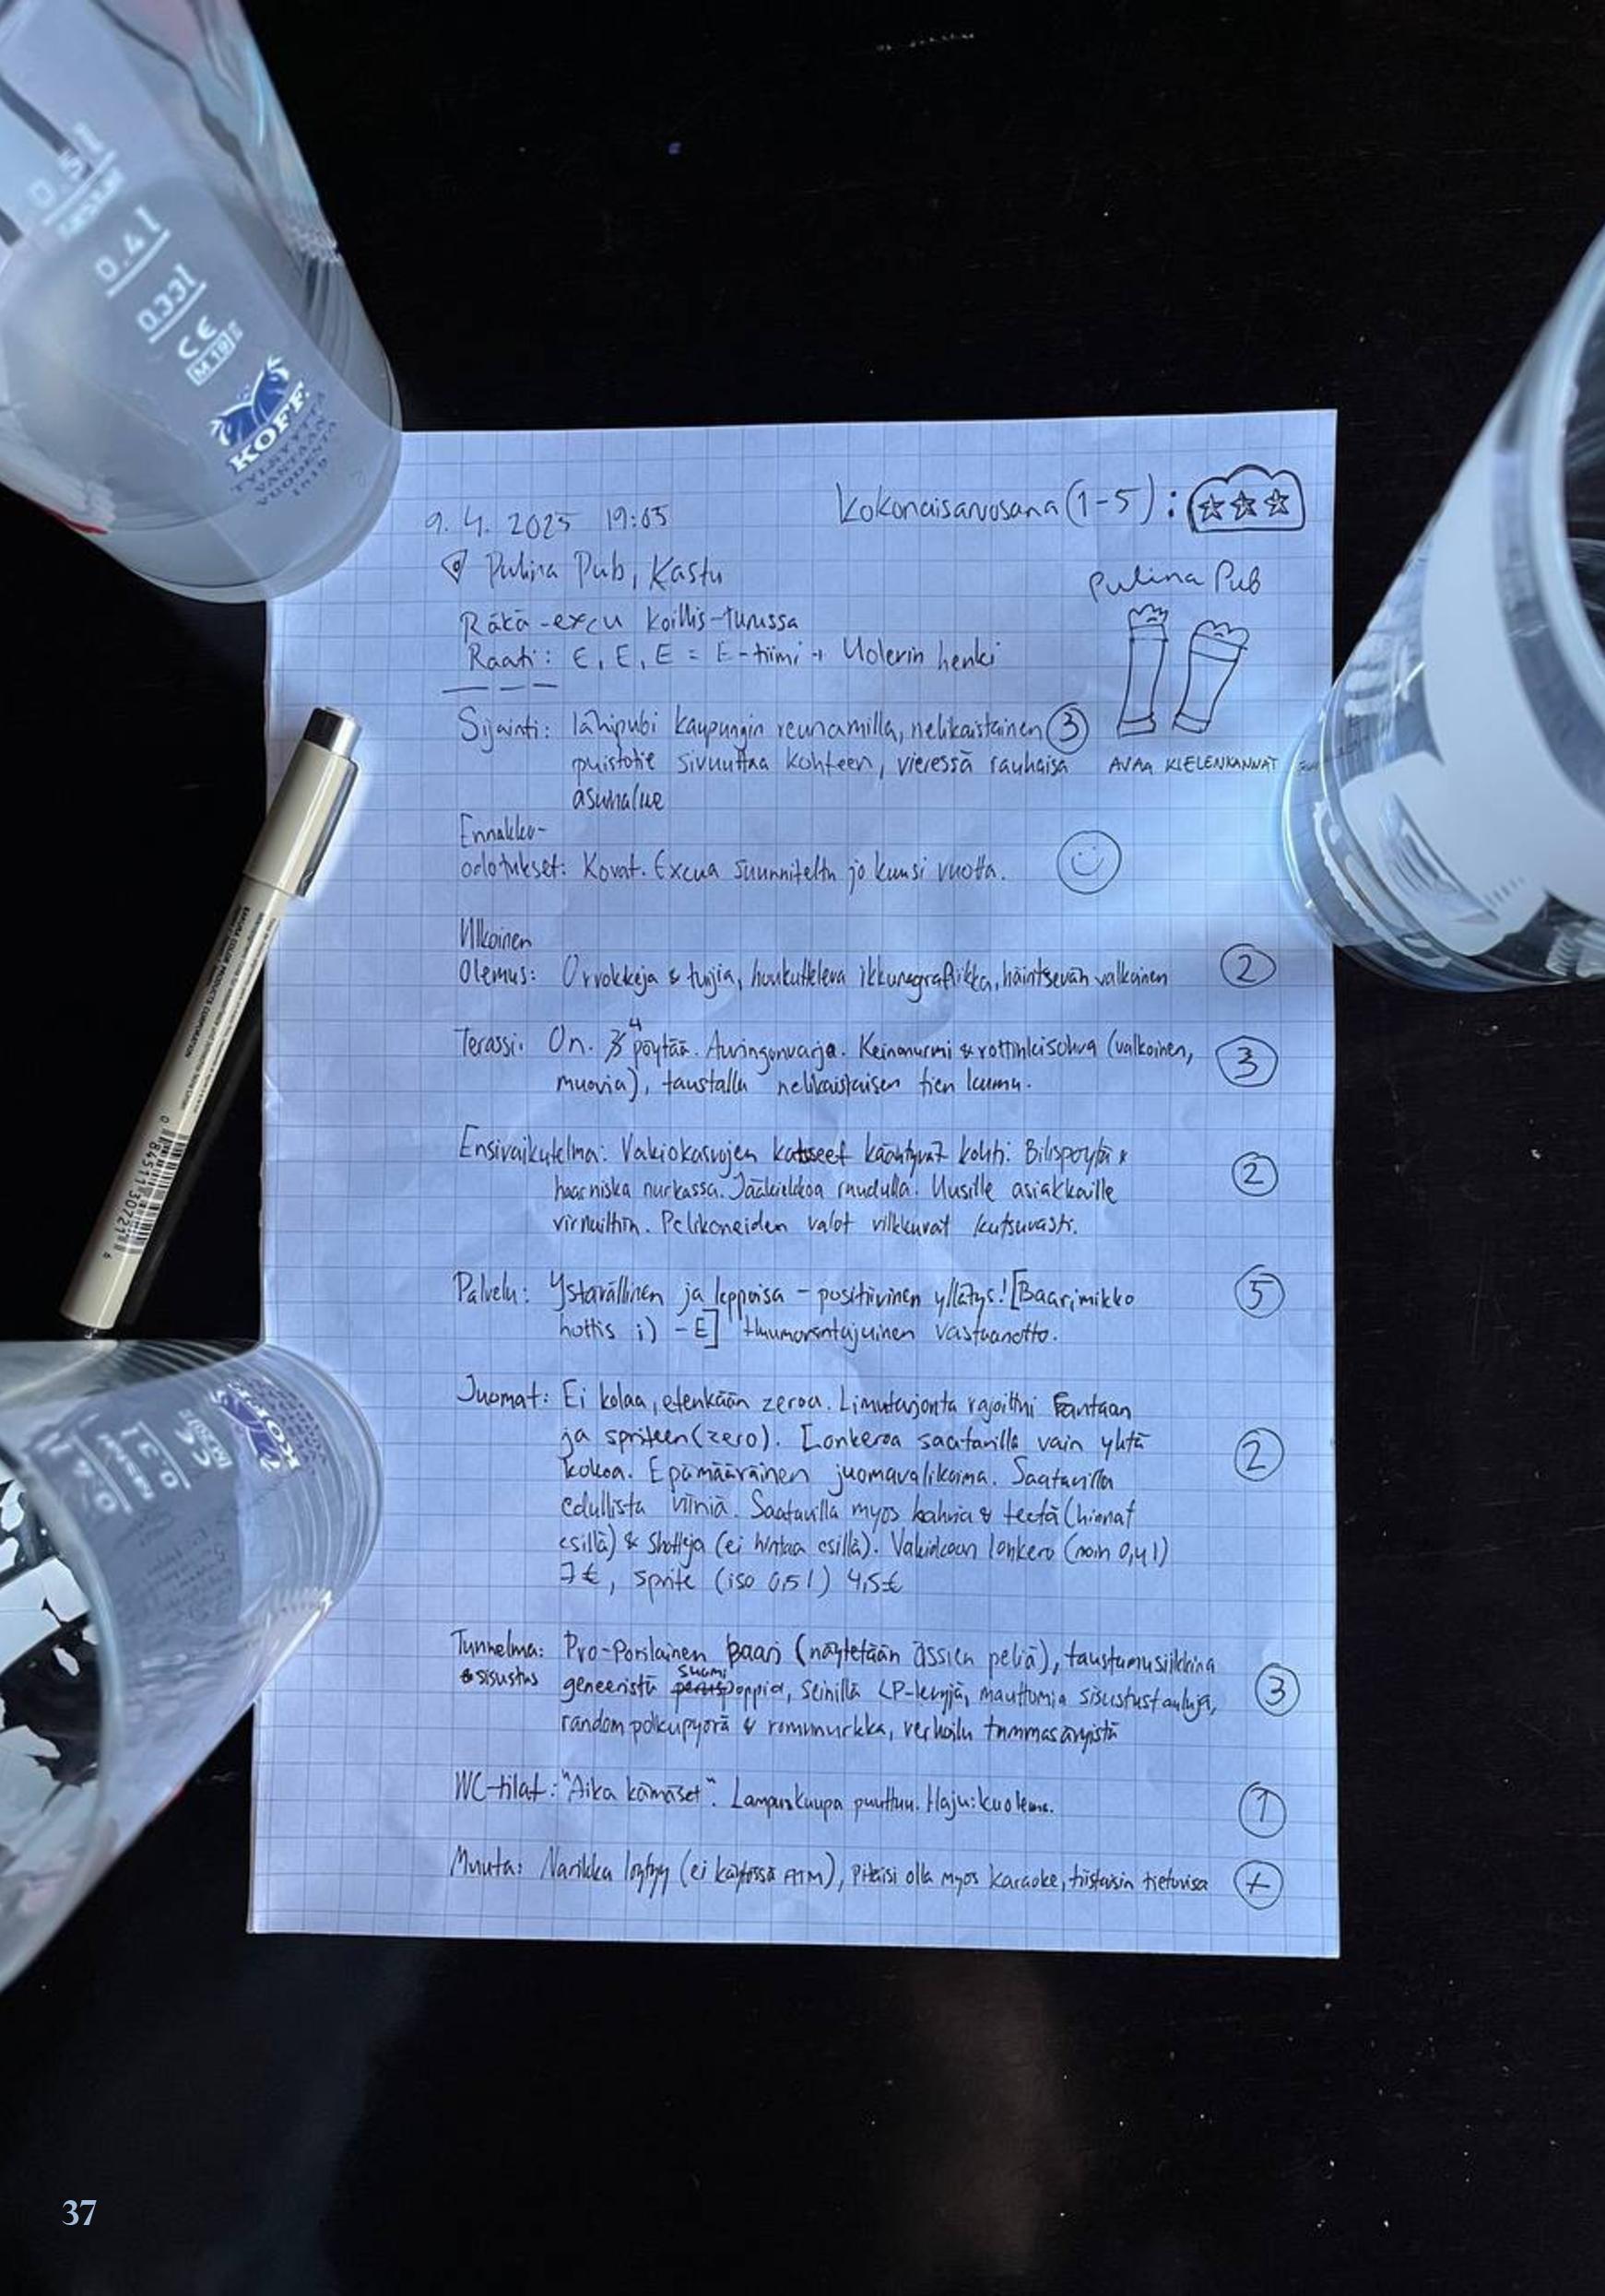 0.5 l
0.4 l
0.33l
CE
M 19
KOFF
9.4. 2025 19:05
Kokonaisarvosana (1-5):
Pulina Pub, Kastu
Pulina Pub
Räkä-excu Koillis-Turussa
Raati: E, E, E = E-tiimi + Uolerin henki
Sijainti: lähipubi kaupungin reunamilla, nelikaistainen 3
puistotie sivuuttaa kohteen, vieressä rauhaisa
asuinalue
AVAA KIELENKANNAT
Ennakko-
odotukset: Kovat. Excua suunniteltu jo kuusi vuotta.
Ulkoinen
Olemus: Orvokkeja & tuijia, houkutteleva ikkunagrafiikka, häintsevän valkoinen 2
Terassi: On. 4 pöytää. Auringonvarjo. Keinonurmi & rottinkisohva (valkoinen, 3
muovia), taustalla nelikaistaisen tien humu.
Ensivaikutelma: Vakiokasvojen katseet kääntyvät kohti. Bilispöytä & 2
haarniska nurkassa. Jääkiekkoa ruudulla. Uusille asiakkaille
virnuiltiin. Pelikoneiden valot vilkkuvat kutsuvasti.
Palvelu: Ystävällinen ja leppoisa - positiivinen yllätys! [Baarimikko 5
hottis ;) -E] Huumorintajuinen vastaanotto.
Juomat: Ei kolaa, etenkään zeroa. Limutarjonta rajoittui Fantaan
ja spriteen (zero). Lonkeroa saatavilla vain yhtä 2
kokoa. Epämääräinen juomavalikoima. Saatavilla
edullista viiniä. Saatavilla myös kahvia & teetä (hinnat
esillä) & shotteja (ei hintaa esillä). Vakiokoon lonkero (noin 0,4 l)
7€, sprite (iso 0,5 l) 4,5€
Tunnelma: Pro-Porilainen baari (näytetään Ässien peliä), taustamusiikkina
& sisustus geneeristä suomipoppia, seinillä LP-levyjä, mauttomia sisustustauluja, 3
random polkupyörä & romunurkka, verhoilu tummasävyistä
WC-tilat: "Aika kämäset". Lampunkuupa puuttuu. Haju: kuolema. 1
Muuta: Narikka löytyy (ei käytössä ATM), pitäisi olla myös karaoke, tiistaisin tietovisa +
0 84511 30721 6
KOFF
37